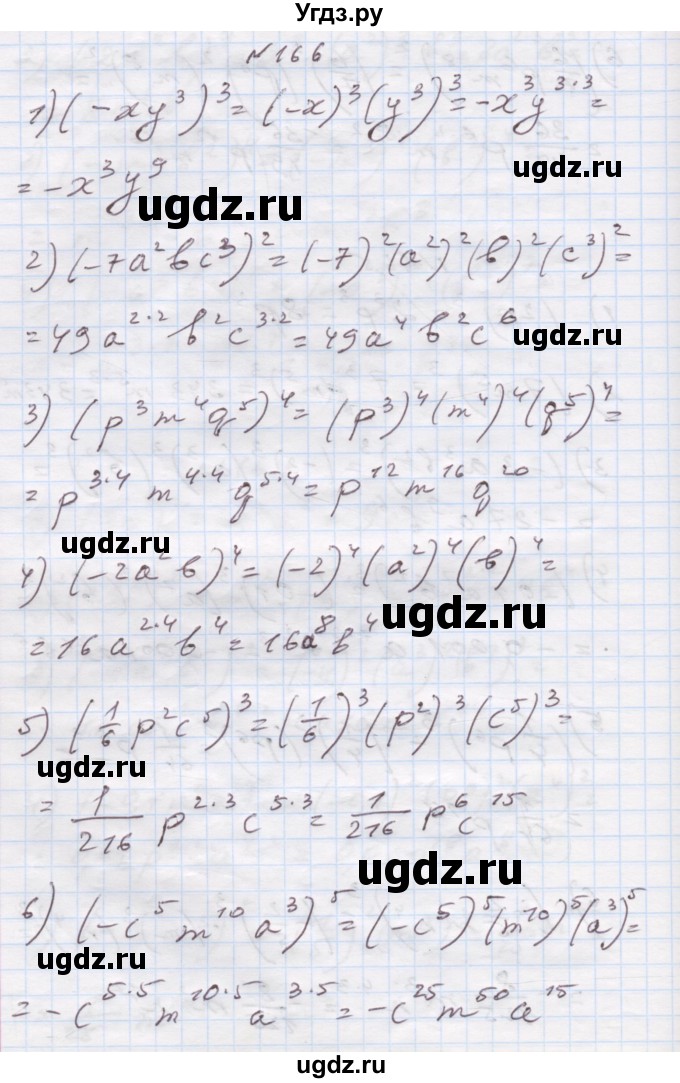 Угдз.ру
№166
1) (-xy³)³ = (-x)³(y³)³ = -x³y³·³ =
ugdz.ru
= -x³y⁹
ugdz.ru
2) (-7a²bc³)² = (-7)²(a²)²(b)²(c³)² =
= 49a²·²b²c³·² = 49a⁴b²c⁶
ugdz.ru
3) (p³m⁴q⁵)⁴ = (p³)⁴(m⁴)⁴(q⁵)⁴ =
= p³·⁴m⁴·⁴q⁵·⁴ = p¹²m¹⁶q²⁰
ugdz.ru
4) (-2a²b)⁴ = (-2)⁴(a²)⁴(b)⁴ =
ugdz.ru
= 16a²·⁴b⁴ = 16a⁸b⁴
5) (1/6 p²c⁵)³ = (1/6)³(p²)³(c⁵)³ =
ugdz.ru
= 1/216 p²·³c⁵·³ = 1/216 p⁶c¹⁵
ugdz.ru
6) (-c⁵m¹⁰a³)⁵ = (-c⁵)⁵(m¹⁰)⁵(a³)⁵ =
ugdz.ru
= -c⁵·⁵m¹⁰·⁵a³·⁵ = -c²⁵m⁵⁰a¹⁵
ugdz.ru